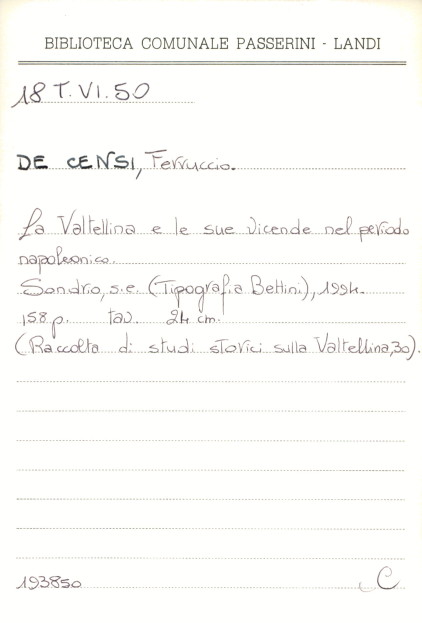 BIBLIOTECA COMUNALE PASSERINI - LANDI
18 T.VI.50
DE CENSI, Ferruccio.
La Valtellina e le sue vicende nel periodo
napoleonico.
Sondrio, s.e. (Tipografia Bettini), 1994.
158 p. tav. 24 cm.
(Raccolta di studi storici sulla Valtellina, 30).
193850 C